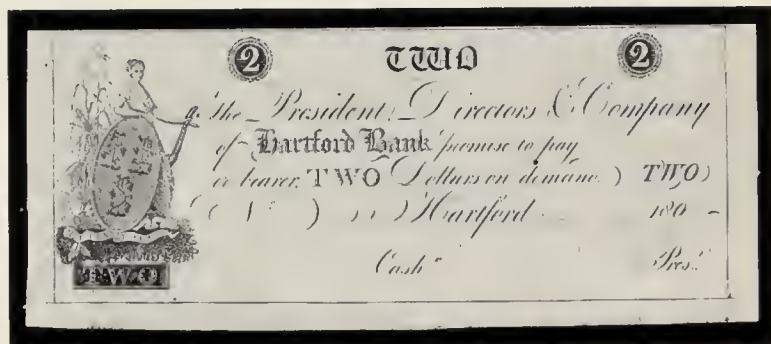 2 TWO 2
The President, Directors & Company
of Hartford Bank promise to pay
or bearer, TWO Dollars on demand. TWO
(N ) Hartford 180
Cashr Prest
TWO